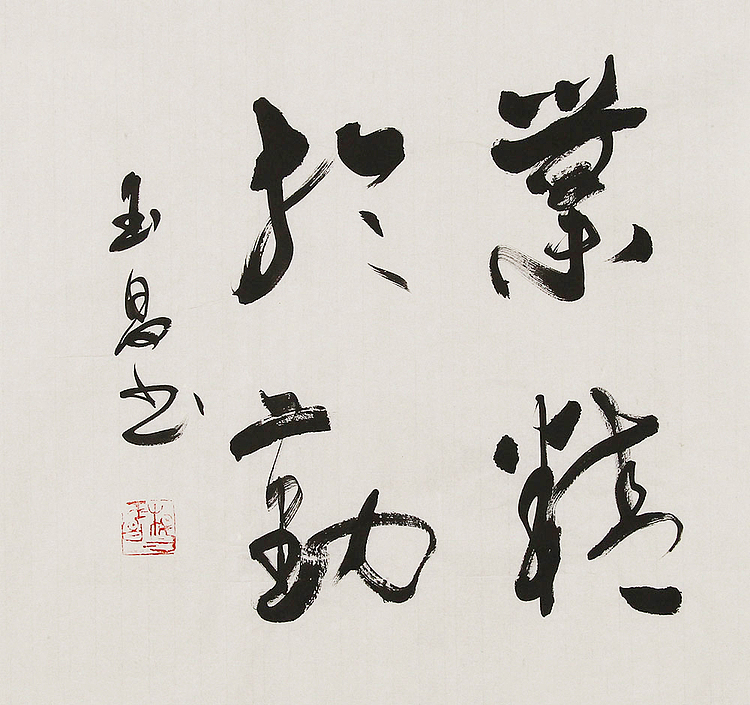 業精
於勤
玉昌书